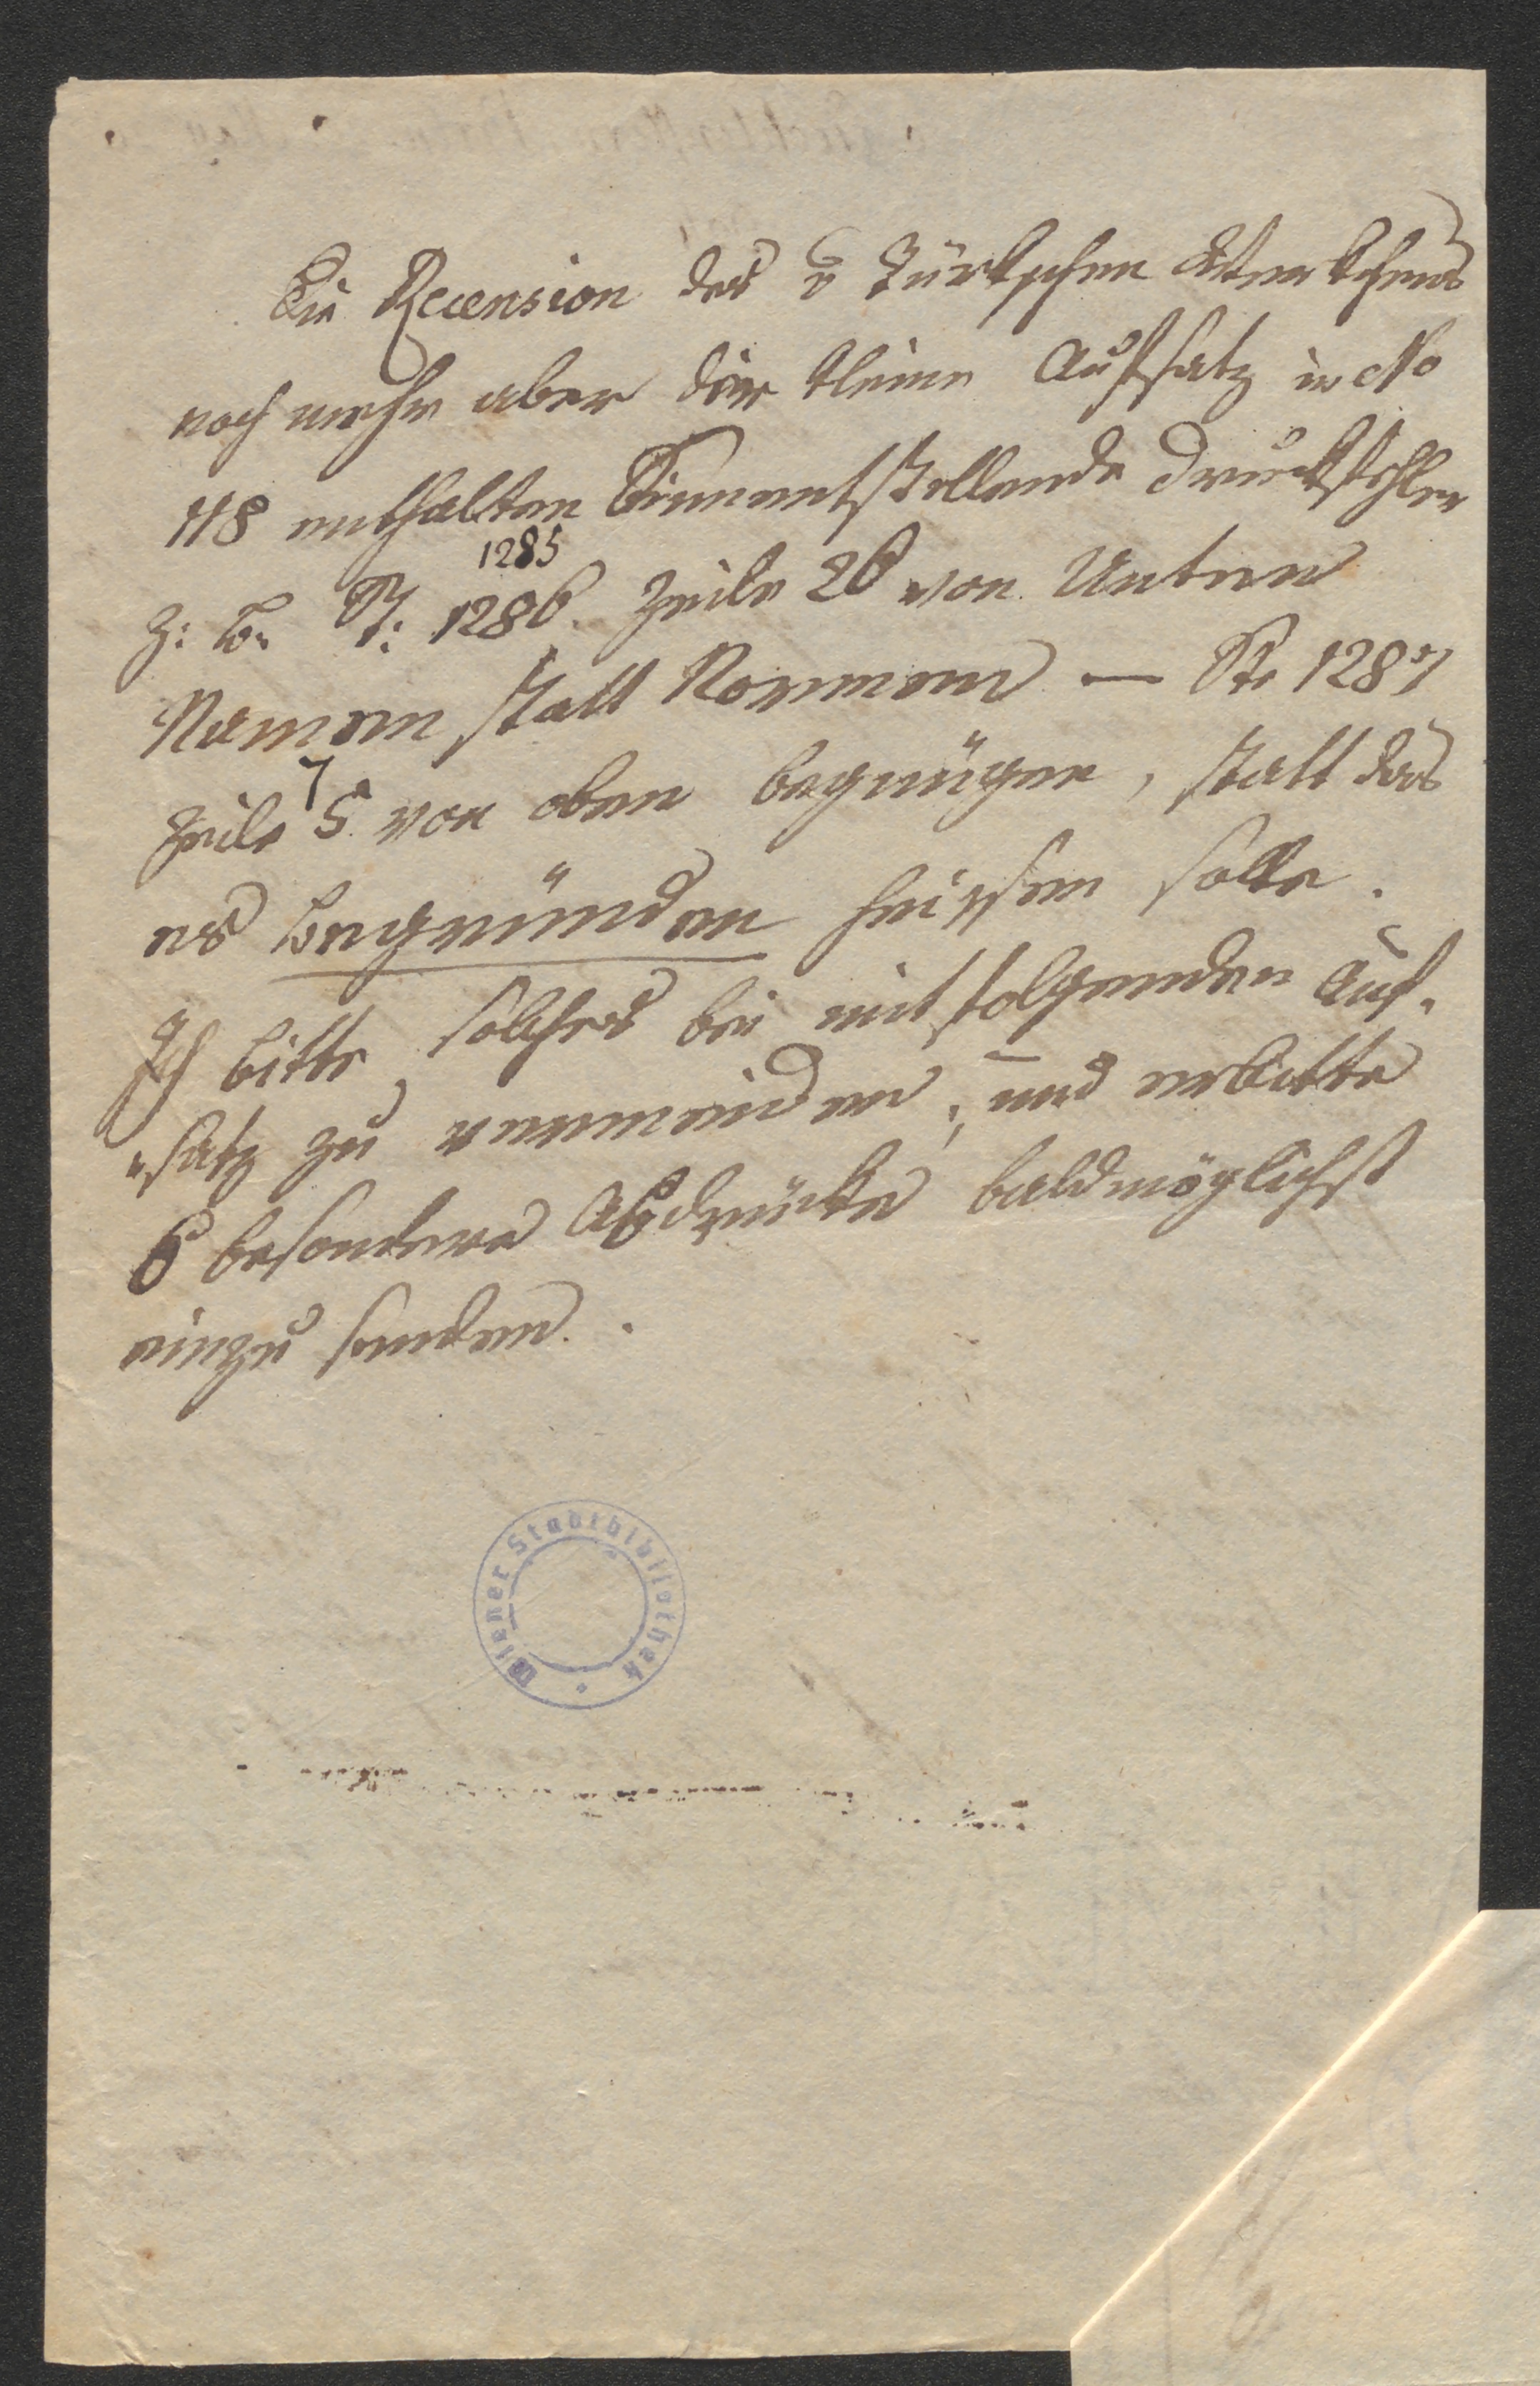 Die Recension des v Türkschen Werkchens
noch mehr aber der kleine Aufsatz in No
118 enthalten Sinnentstellende Druckfehler
1285
z: B. S: 1286. Zeile 26 von Unten
Namen statt Normen — Ste 1287
7
Zeile 5. von oben begnügen, statt das
es begründen heissen solle.
Ich bitte, solches bei mitfolgenden Auf-
"satz zu vermeiden, und erbitte
6 besondere Abdrücke baldmöglichst
einzu senden.
Wiener Stadtbibliothek